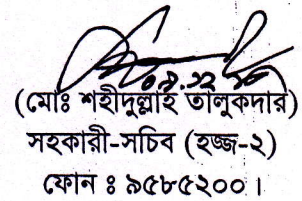 (মোঃ শহীদুল্লাহ তালুকদার)
সহকারী-সচিব (হজ্জ-২)
ফোন ঃ ৯৫৮৫২০০।